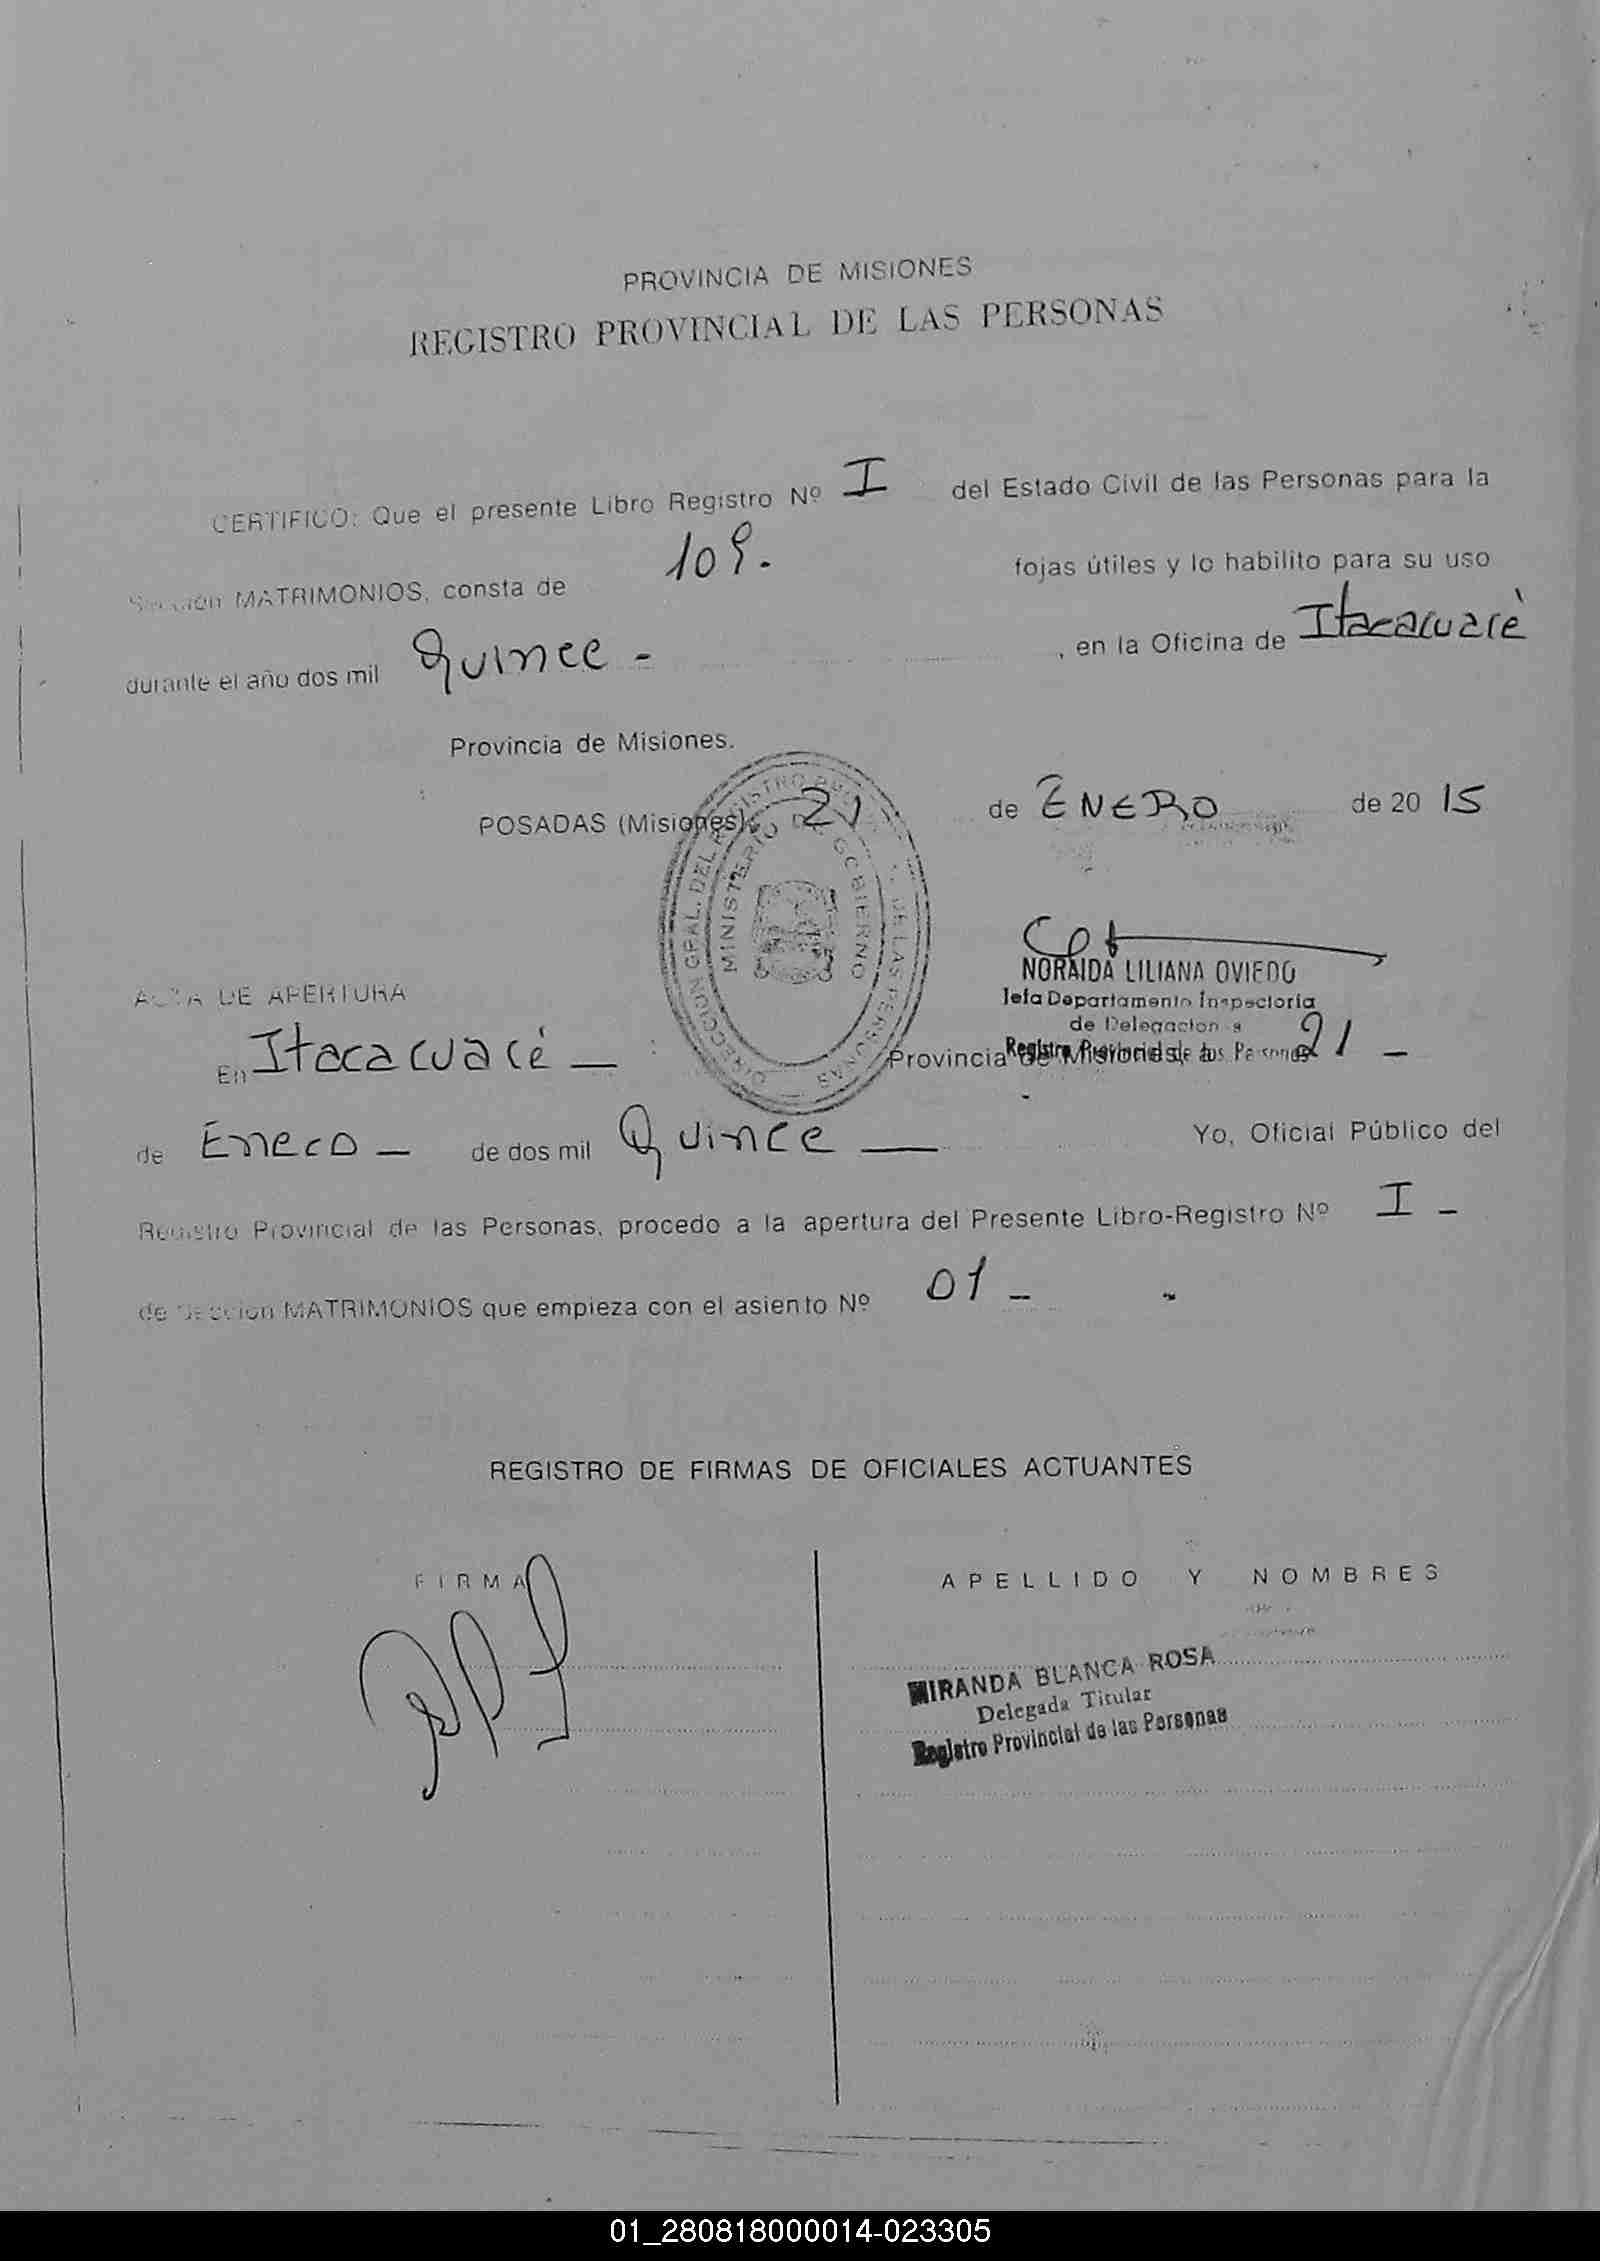 PROVINCIA DE MISIONES
REGISTRO PROVINCIAL DE LAS PERSONAS
CERTIFICO: Que el presente Libro Registro Nº I del Estado Civil de las Personas para la
Sección MATRIMONIOS, consta de 109. fojas útiles y lo habilito para su uso
durante el año dos mil Quince - , en la Oficina de Itacacuaré
Provincia de Misiones.
POSADAS (Misiones), 21 de ENERO de 2015
DIRECCION GRAL. DEL REGISTRO DE LAS PERSONAS
MINISTERIO DE GOBIERNO
NORAIDA LILIANA OVIEDO
Jefa Departamento Inspectoria
de Delegaciones
Registro Provincial de las Personas
ACTA DE APERTURA
En Itacacuaré — Provincia de Misiones, a 21 -
de Enero - de dos mil Quince — Yo, Oficial Público del
Registro Provincial de las Personas, procedo a la apertura del Presente Libro-Registro Nº I -
de Sección MATRIMONIOS que empieza con el asiento Nº 01 -
REGISTRO DE FIRMAS DE OFICIALES ACTUANTES
FIRMA APELLIDO Y NOMBRES
MIRANDA BLANCA ROSA
Delegada Titular
Registro Provincial de las Personas
01_280818000014-023305